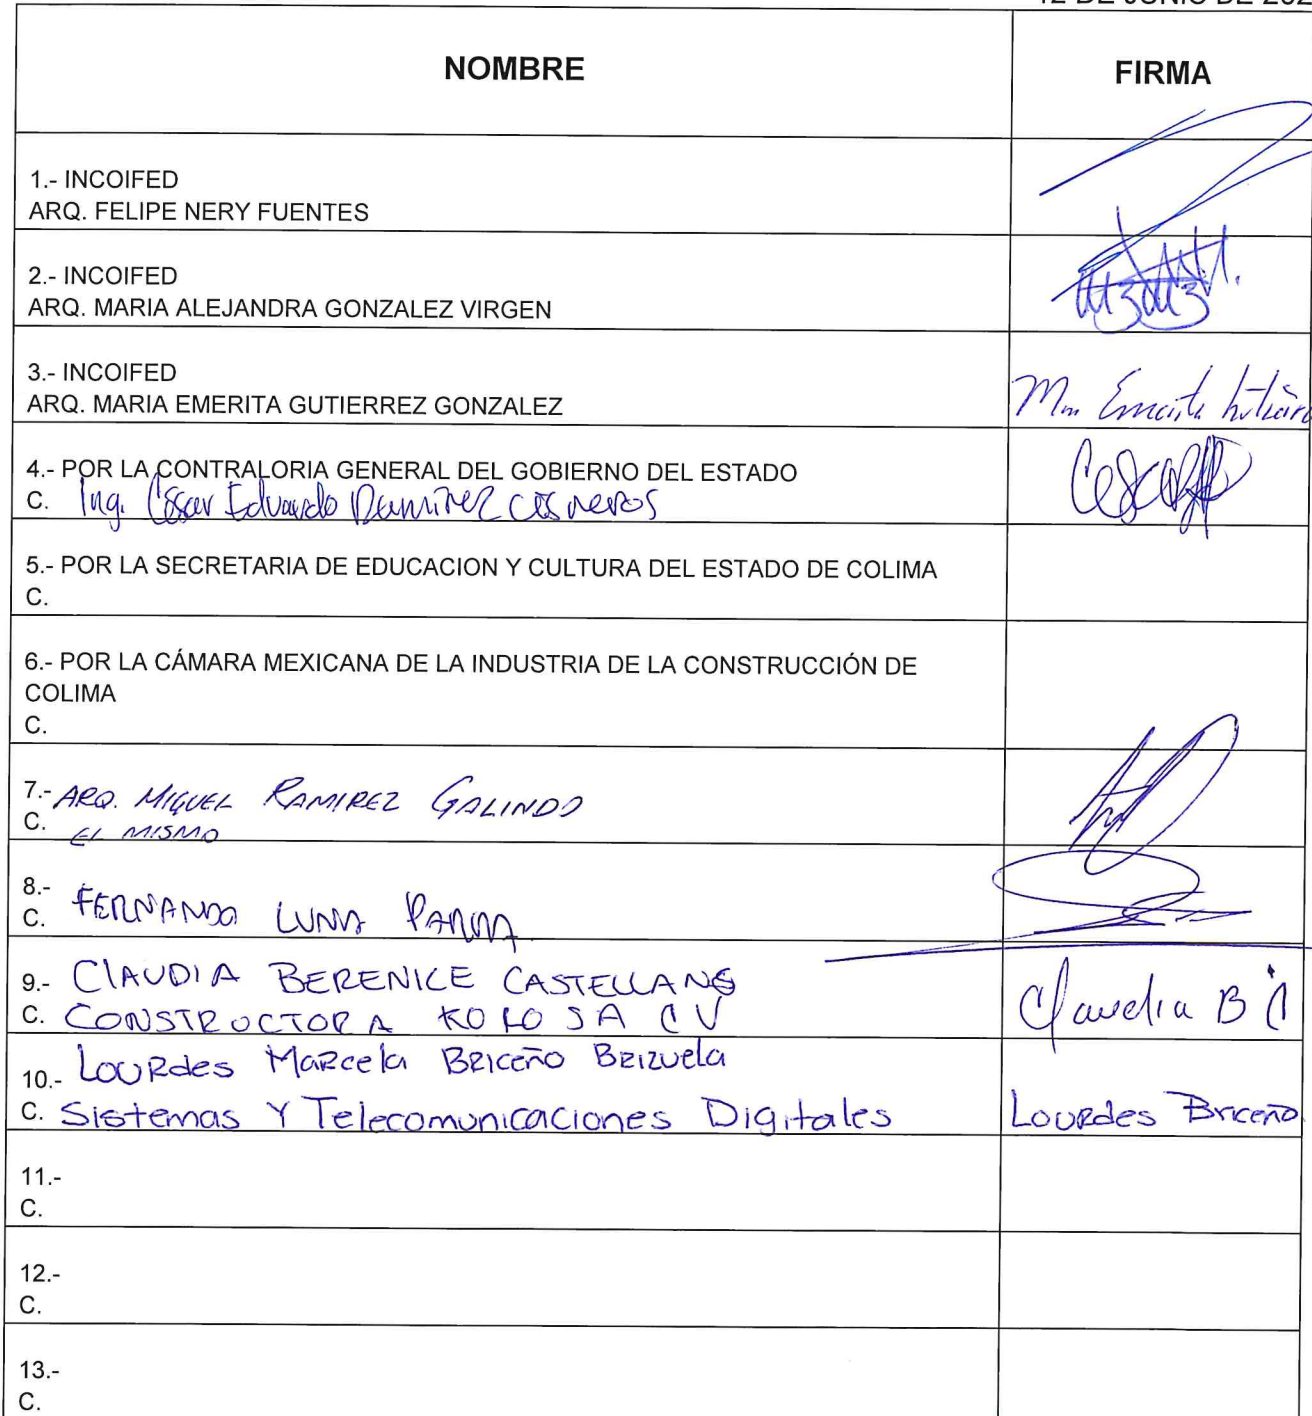 12 DE JUNIO DE 202
NOMBRE
FIRMA
1.- INCOIFED
ARQ. FELIPE NERY FUENTES
2.- INCOIFED
ARQ. MARIA ALEJANDRA GONZALEZ VIRGEN
3.- INCOIFED
ARQ. MARIA EMERITA GUTIERREZ GONZALEZ
4.- POR LA CONTRALORIA GENERAL DEL GOBIERNO DEL ESTADO
C. Ing. César Eduardo Ramirez Cisneros
5.- POR LA SECRETARIA DE EDUCACION Y CULTURA DEL ESTADO DE COLIMA
C.
6.- POR LA CÁMARA MEXICANA DE LA INDUSTRIA DE LA CONSTRUCCIÓN DE
COLIMA
C.
7.- ARQ. MIGUEL RAMIREZ GALINDO
C. EL MISMO
8.-
C. FERNANDO LUNA PARRA
9.- CLAUDIA BERENICE CASTELLANOS
C. CONSTRUCTORA KOLO SA CV
Claudia B C
10.- Lourdes Marcela Briceño Brizuela
C. Sistemas Y Telecomunicaciones Digitales
Lourdes Briceño
11.-
C.
12.-
C.
13.-
C.